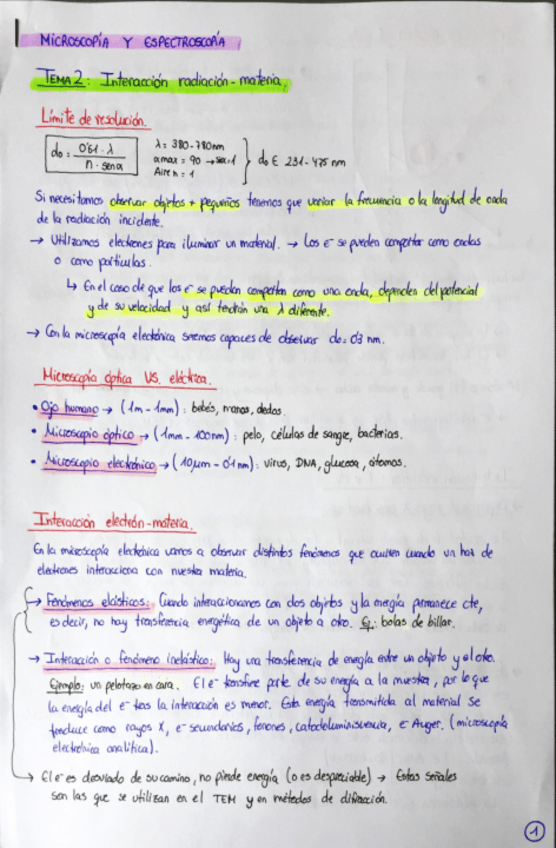 MICROSCOPÍA Y ESPECTROSCOPÍA
TEMA 2: Interacción radiación-materia.
Límite de resolución.
do = 0'61 · λ / n · sen α
λ = 380-780nm
αmax = 90 → sen=1
Aire n = 1
do ∈ 231-475 nm
Si necesitamos observar objetos + pequeños tenemos que variar la frecuencia o la longitud de onda
de la radiación incidente.
→ Utilizamos electrones para iluminar un material. → Los e⁻ se pueden comportar como ondas
o como partículas.
↳ En el caso de que los e⁻ se puedan comportar como una onda, dependen del potencial
y de su velocidad y así tendrán una λ diferente.
→ Con la microscopía electrónica seremos capaces de observar do = 0'3 nm.
Microscopía óptica VS. eléctrica.
• Ojo humano → (1m-1mm): bebés, manos, dedos.
• Microscopio óptico → (1mm-100nm): pelo, células de sangre, bacterias.
• Microscopio electrónico → (10μm-0'1nm): virus, DNA, glucosa, átomos.
Interacción electrón-materia.
En la microscopía electrónica vamos a observar distintos fenómenos que ocurren cuando un haz de
electrones interacciona con nuestra materia.
→ Fenómenos elásticos: Cuando interaccionamos con dos objetos y la energía permanece cte,
es decir, no hay transferencia energética de un objeto a otro. Ej: bolas de billar.
→ Interacción o fenómeno inelástico: Hay una transferencia de energía entre un objeto y el otro.
Ejemplo: un pelotazo en cara. El e⁻ transfiere parte de su energía a la muestra, por lo que
la energía del e⁻ tras la interacción es menor. Esta energía transmitida al material se
traduce como rayos X, e⁻ secundarios, fonones, catodoluminiscencia, e⁻ Auger. (microscopía
electrónica analítica).
→ El e⁻ es desviado de su camino, no pierde energía (o es despreciable) → Estas señales
son las que se utilizan en el TEM y en métodos de difracción.
1